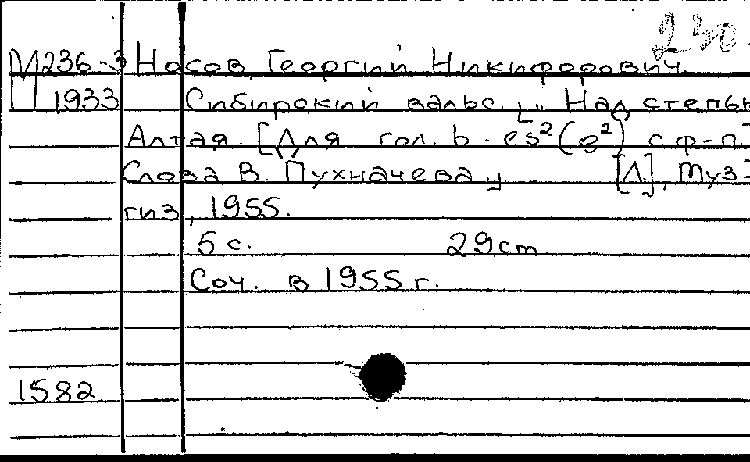 М236-3 Носов, Георгий Никифорович.
П 1933 Сибирский вальс. „Над степью
Алтая. [Для гол. b - es² (g²) с ф-п.]
Слова В. Пухначева. [Л], Муз-
гиз, 1955.
5 с. 29 cm
Соч. в 1955 г.
1582